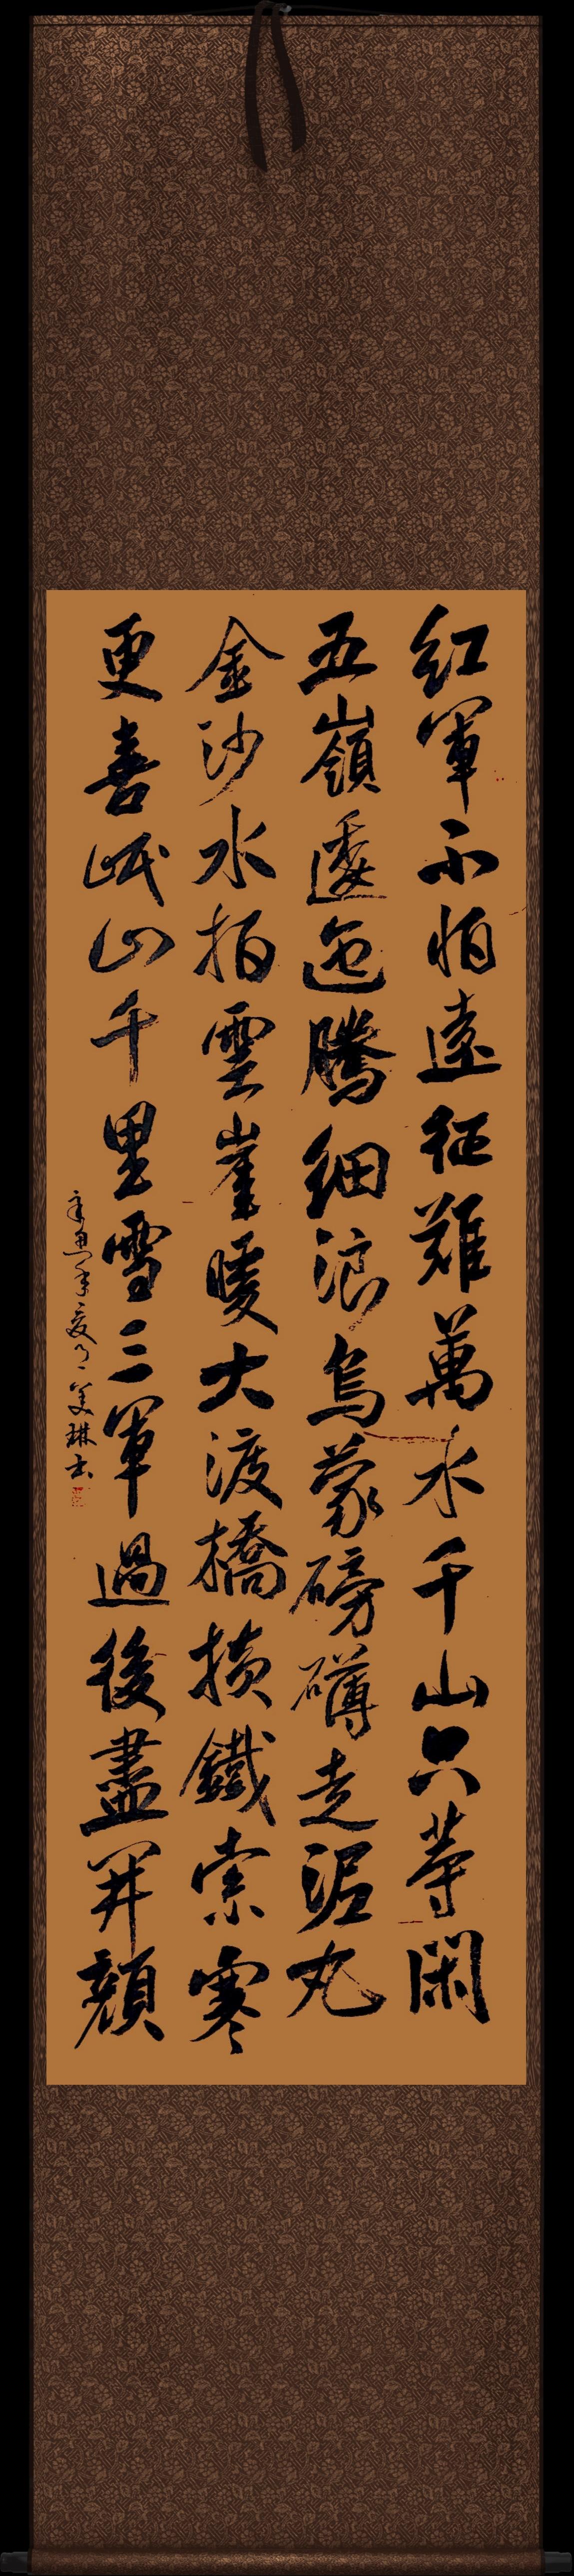 紅軍不怕遠征難萬水千山只等閑
五嶺逶迤騰細浪烏蒙磅礴走泥丸
金沙水拍雲崖暖大渡橋橫鐵索寒
更喜岷山千里雪三軍過後盡開顏
辛丑年夏月美琳書